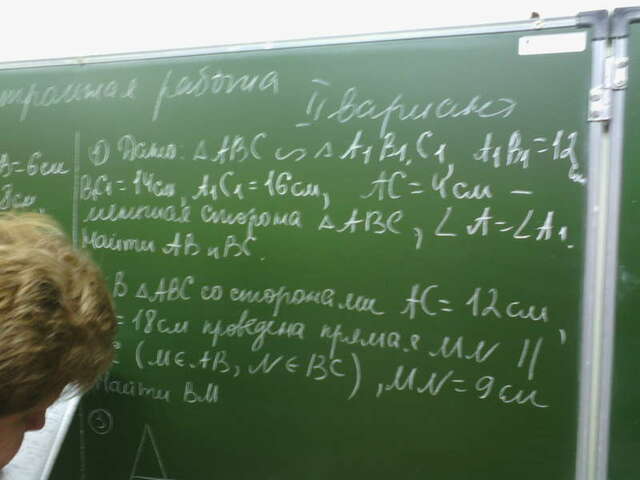 трольная работа
II вариант
B=6см
8см
① Дано: △ABC ∽ △A₁B₁C₁, A₁B₁=12 см
B₁C₁=14см, A₁C₁=16см, AC=4см –
сторона △ABC, ∠A=∠A₁.
Найти AB и BC.
В △ABC со сторонами AC=12см,
=18см проведена прямая MN ||
(M∈AB, N∈BC), MN=9см
Найти BM
③